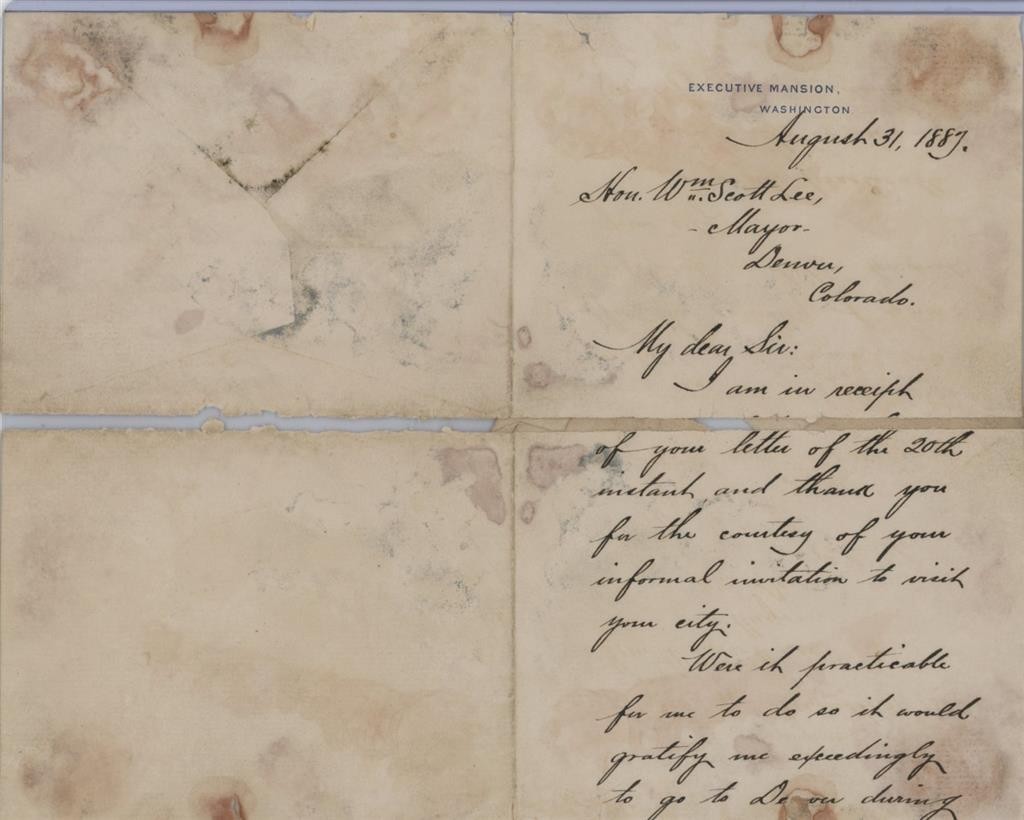 EXECUTIVE MANSION,
WASHINGTON
August 31, 1887.
Hon. Wm. Scott Lee,
- Mayor -
Denver,
Colorado.
My dear Sir:
I am in receipt
of your letter of the 20th
instant and thank you
for the courtesy of your
informal invitation to visit
your city.
Were it practicable
for me to do so it would
gratify me exceedingly
to go to De ver during